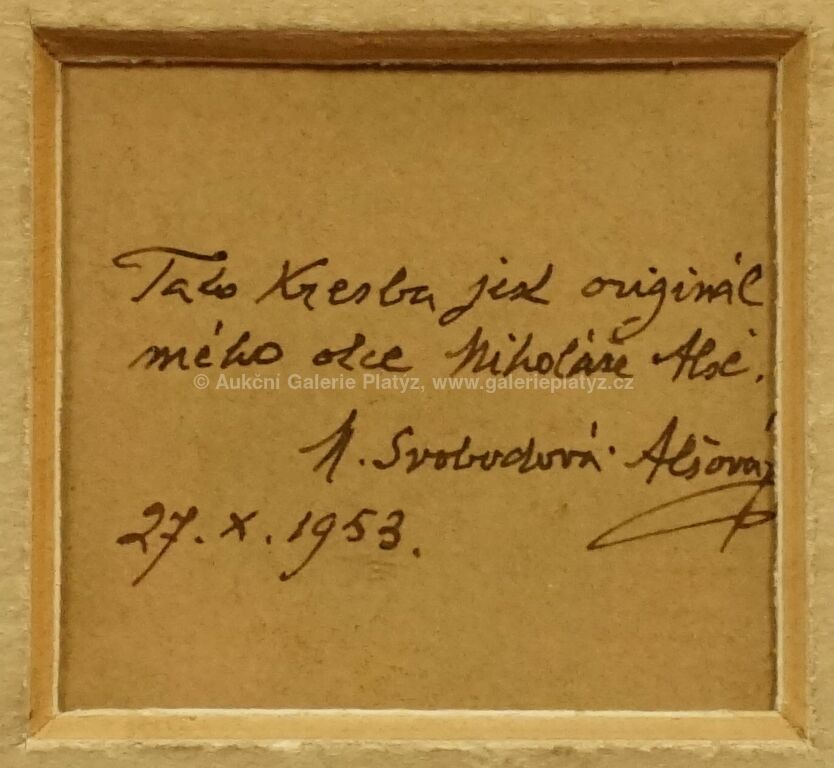 Tato Kresba jest originál
mého otce Mikoláše Alše.
© Aukční Galerie Platýz, www.galerieplatyz.cz
M. Svobodová-Alšová,
27. X. 1953.